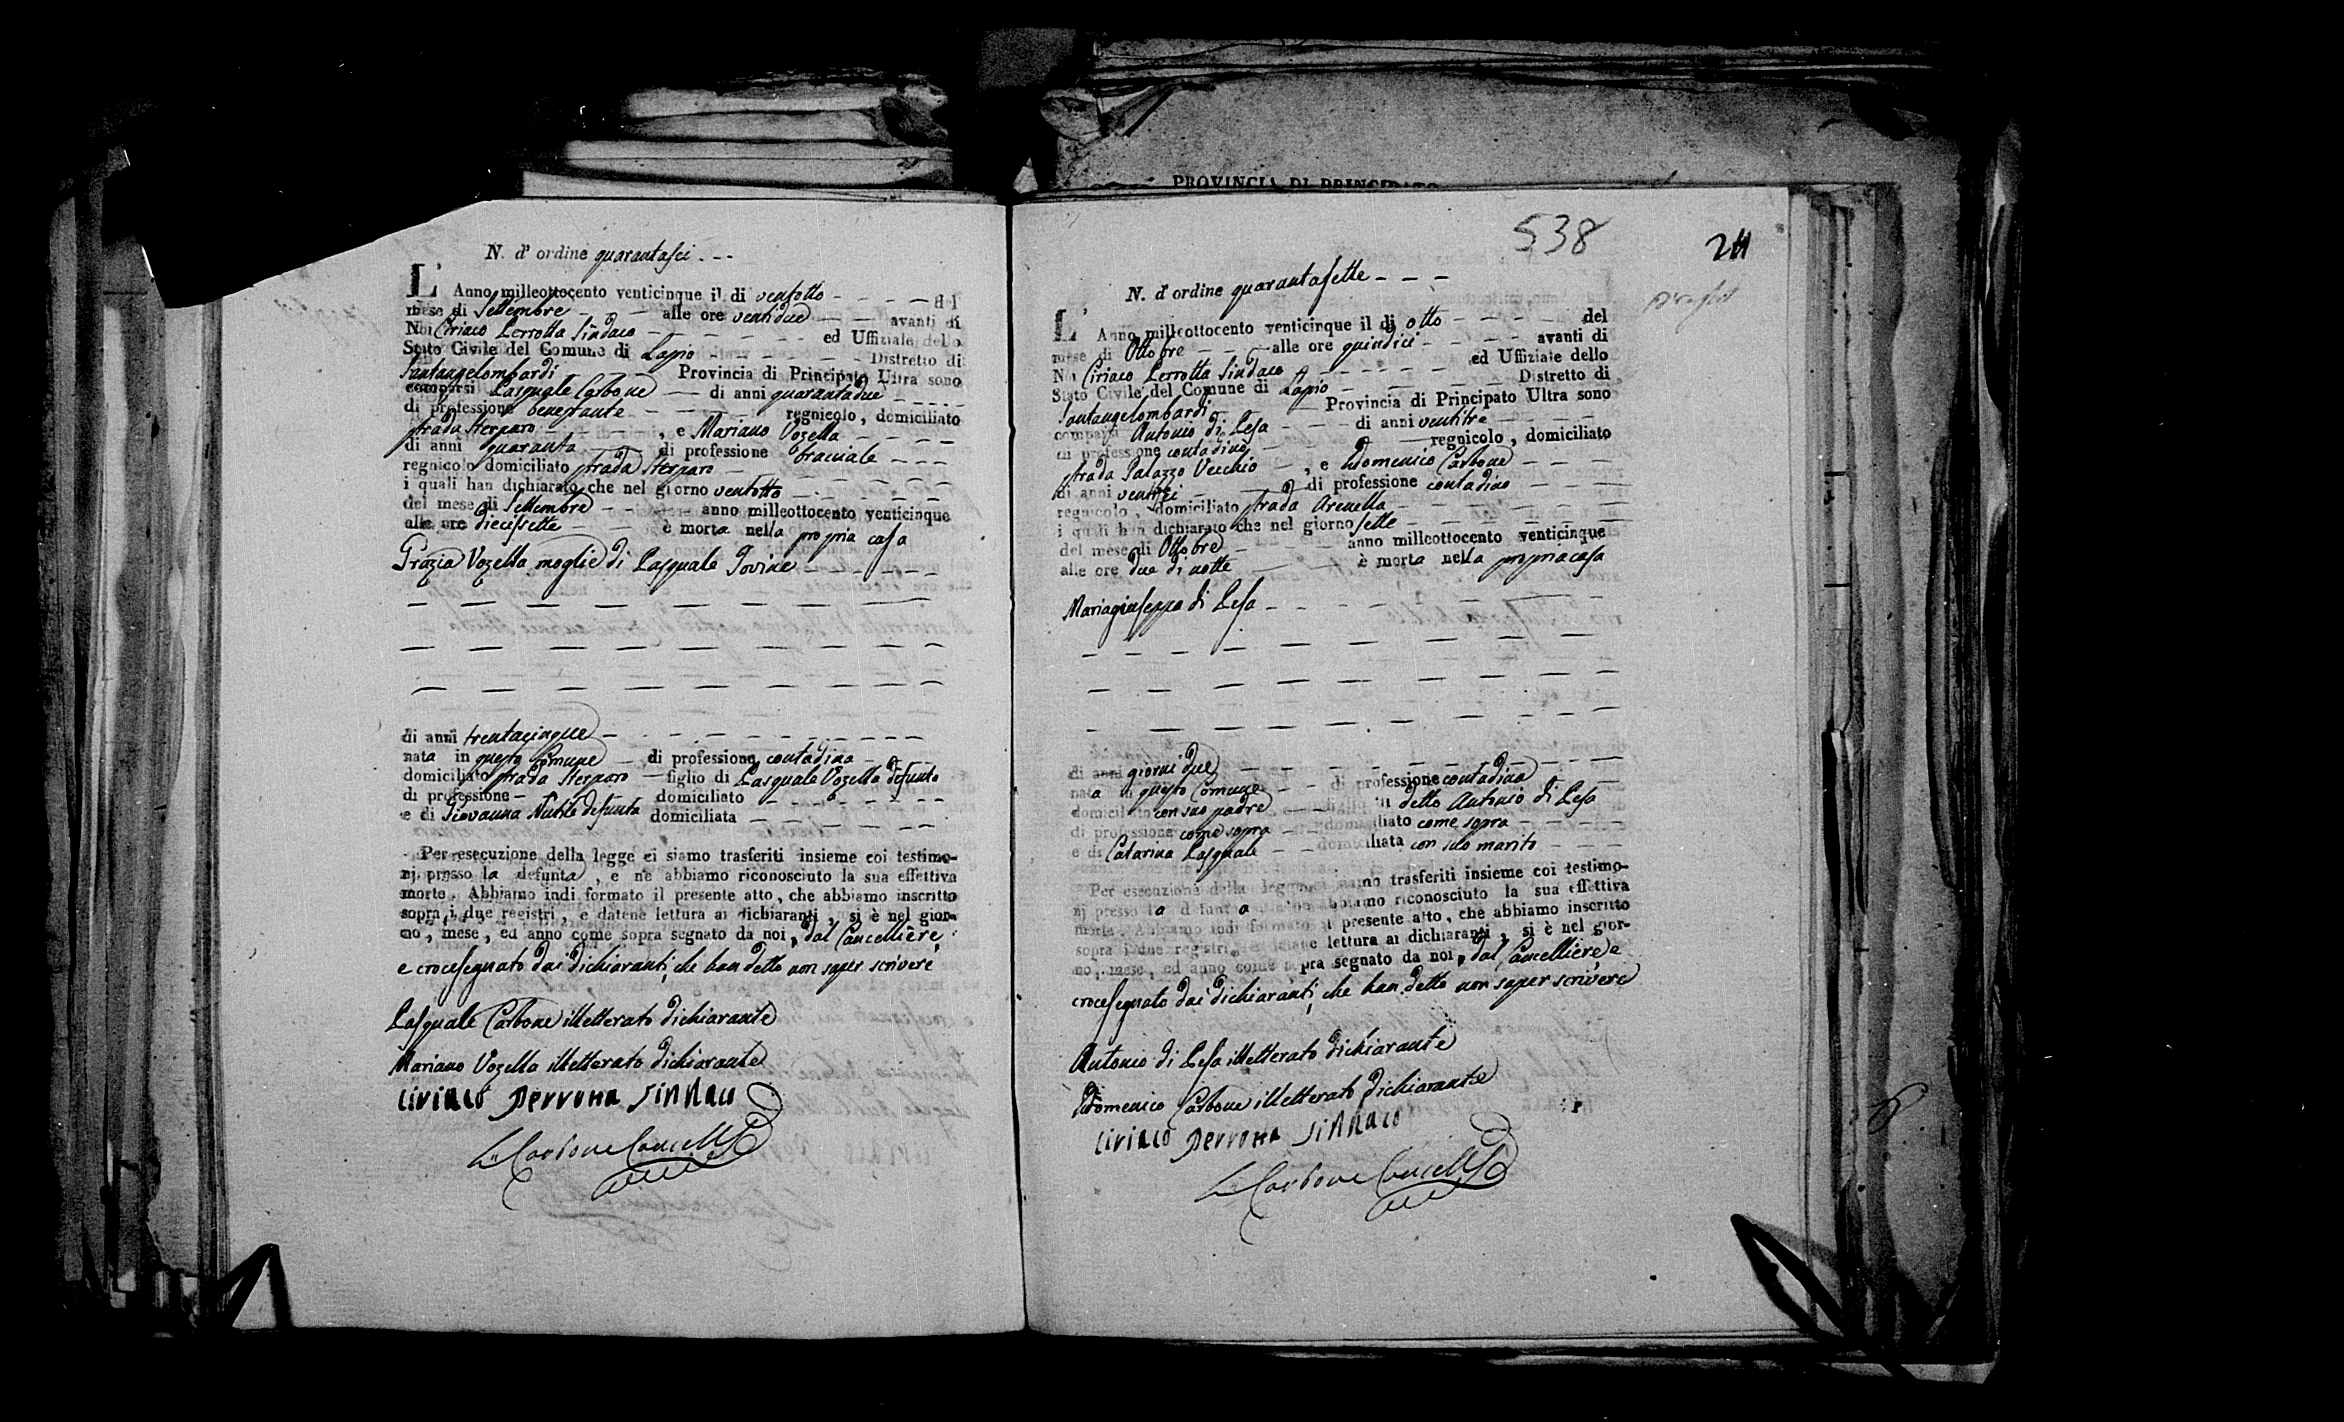 N. d' ordine quarantasei
L' Anno milleottocento venticinque il di ventotto del
mese di Settembre alle ore ventidue avanti di
Noi Ciriaco Perrotta Sindaco ed Uffiziale dello
Stato Civile del Comune di Lapio Distretto di
Santangelombardi Provincia di Principato Ultra sono
comparsi Pasquale Carbone di anni quarantadue
di professione benestante regnicolo, domiciliato
strada Sterparo, e Mariano Vozella
di anni quaranta di professione bracciale
regnicolo domiciliato strada Sterparo
i quali han dichiarato che nel giorno ventotto
del mese di Settembre anno milleottocento venticinque
alle ore diecissette è morta nella propria casa
Grazia Vozella moglie di Pasquale Iovine
di anni trentacinque
nata in questo Comune di professione contadina
domiciliato strada Sterparo figlio di Pasquale Vozella defunto
di professione domiciliato
e di Giovanna Nutile defunta domiciliata
Per esecuzione della legge ci siamo trasferiti insieme coi testimo-
nj presso la defunta, e ne abbiamo riconosciuto la sua effettiva
morte. Abbiamo indi formato il presente atto, che abbiamo inscritto
sopra i due registri, e datene lettura ai dichiaranti, si è nel gior-
no, mese, ed anno come sopra segnato da noi, dal Cancelliere,
e crocesegnato dai dichiaranti, che han detto non saper scrivere
Pasquale Carbone illetterato dichiarante
Mariano Vozella illetterato dichiarante
Ciriaco Perrotta Sindaco
Carbone Cancell
PROVINCIA DI PRINCIPATO
538
N. d' ordine quarantasette
L' Anno milleottocento venticinque il di otto del
mese di Ottobre alle ore quindici avanti di
Noi Ciriaco Perrotta Sindaco ed Uffiziale dello
Stato Civile del Comune di Lapio Distretto di
Santangelombardi Provincia di Principato Ultra sono
comparsi Antonio di Pesa di anni ventitre
di professione contadino regnicolo, domiciliato
strada Palazzo Vecchio, e Domenico Carbone
di anni ventisei di professione contadino
regnicolo, domiciliato strada Arenella
i quali han dichiarato che nel giorno sette
del mese di Ottobre anno milleottocento venticinque
alle ore due di notte è morta nella propria casa
Mariagiuseppa di Pesa
di anni giorni due
nata in questo Comune di professione contadina
domiciliato con suo padre di detto Antonio di Pesa
di professione come sopra domiciliato come sopra
e di Catarina Pasquale domiciliata con suo marito
Per esecuzione della legge ci siamo trasferiti insieme coi testimo-
nj presso la defunta, e ne abbiamo riconosciuto la sua effettiva
morte. Abbiamo indi formato il presente atto, che abbiamo inscritto
sopra i due registri, e datene lettura ai dichiaranti, si è nel gior-
no, mese, ed anno come sopra segnato da noi, dal Cancelliere e
crocesegnato dai dichiaranti, che han detto non saper scrivere
Antonio di Pesa illetterato dichiarante
Domenico Carbone illetterato dichiarante
Ciriaco Perrotta Sindaco
Carbone Cancell